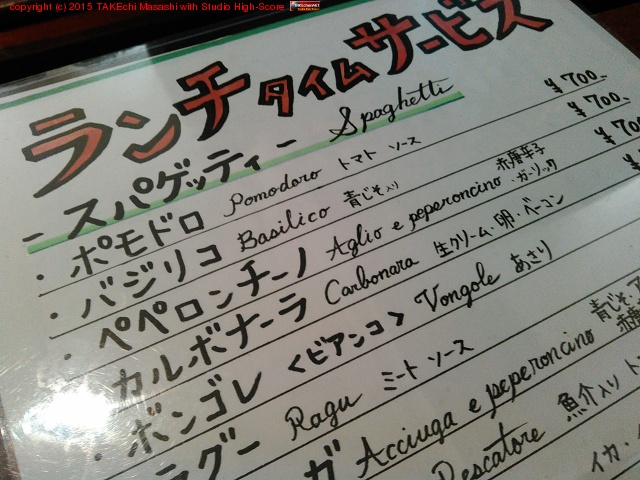 copyright (c) 2015 TAKEchi Masashi with Studio High-Score
ランチタイムサービス
- スパゲッティ - Spaghetti
・ポモドロ Pomodoro トマト ソース ¥700-
・バジリコ Basilico 青じそ入り ¥700-
・ペペロンチーノ Aglio e peperoncino 赤唐辛子・ガーリック ¥700
カルボナーラ Carbonara 生クリーム、卵・ベーコン ¥
・ボンゴレ <ビアンコ> Vongole あさり
ラグー Ragu ミート ソース
ガ Acciuga e peperoncino 青じそ、ア 赤唐
Pescatore 魚介入り ト
イカ・